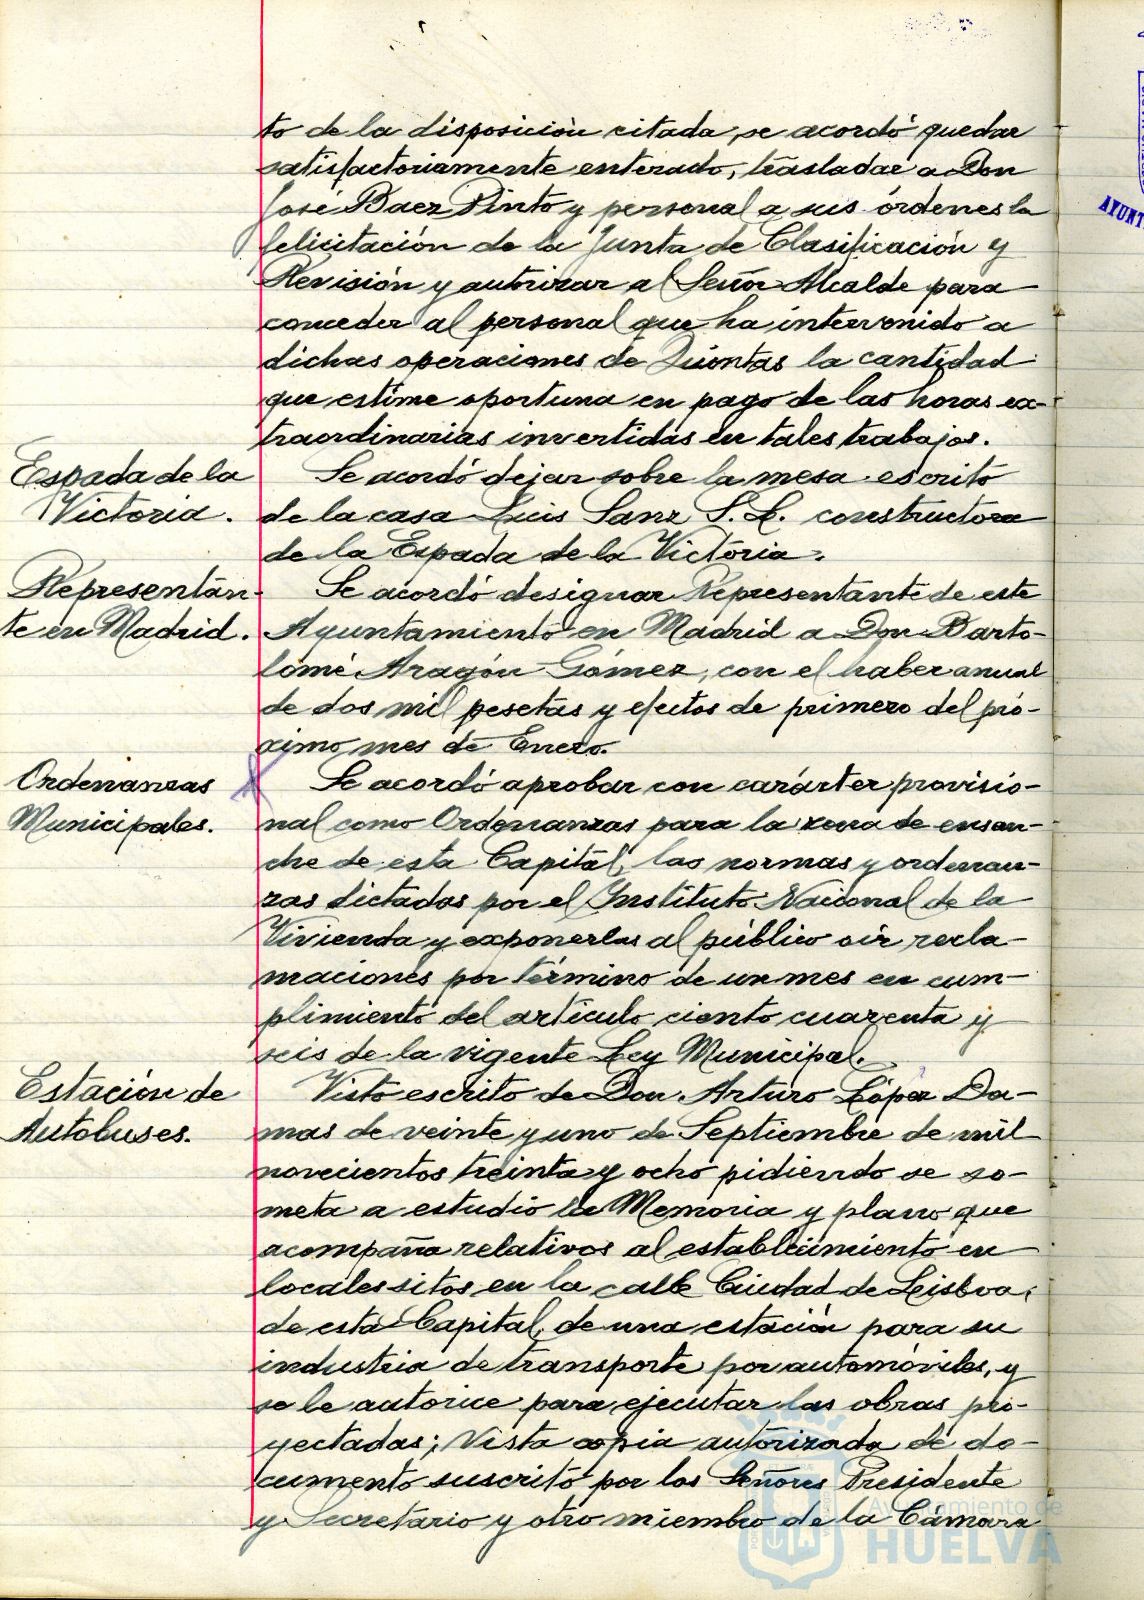 to de la disposición citada, se acordó quedar
satisfactoriamente enterado, trasladar a Don
José Baez Pinto y personal a sus órdenes la
felicitación de la Junta de Clasificación y
Revisión y autorizar al Señor Alcalde para
conceder al personal que ha intervenido a
dichas operaciones de Quintas la cantidad
que estime oportuna en pago de las horas ex-
traordinarias invertidas en tales trabajos.
Espada de la
Victoria.
Se acordó dejar sobre la mesa escrito
de la casa Luis Sanz S. L. constructora
de la Espada de la Victoria.
Representan-
te en Madrid.
Se acordó designar Representante de este
Ayuntamiento en Madrid a Don Barto-
lomé Aragón Gómez, con el haber anual
de dos mil pesetas y efectos de primero del pró-
ximo mes de Enero.
Ordenanzas
Municipales.
Se acordó aprobar con carácter provisio-
nal como Ordenanzas para la zona de ensan-
che de esta Capital, las normas y ordenan-
zas dictadas por el Instituto Nacional de la
Vivienda y exponerlas al público oir recla-
maciones por término de un mes en cum-
plimiento del artículo ciento cuarenta y
seis de la vigente Ley Municipal.
Estación de
Autobuses.
Visto escrito de Don Arturo López Da-
mas de veinte y uno de Septiembre de mil
novecientos treinta y ocho pidiendo se so-
meta a estudio la Memoria y plano que
acompaña relativos al establecimiento en
locales sitos en la calle Ciudad de Leisboa,
de esta Capital, de una estación para su
industria de transporte por automóviles, y
se le autorice para ejecutar las obras pro-
yectadas; Vista copia autorizada de do-
cumento suscrito por los Señores Presidente
y Secretario y otro miembro de la Cámara
Ayuntamiento de
HUELVA